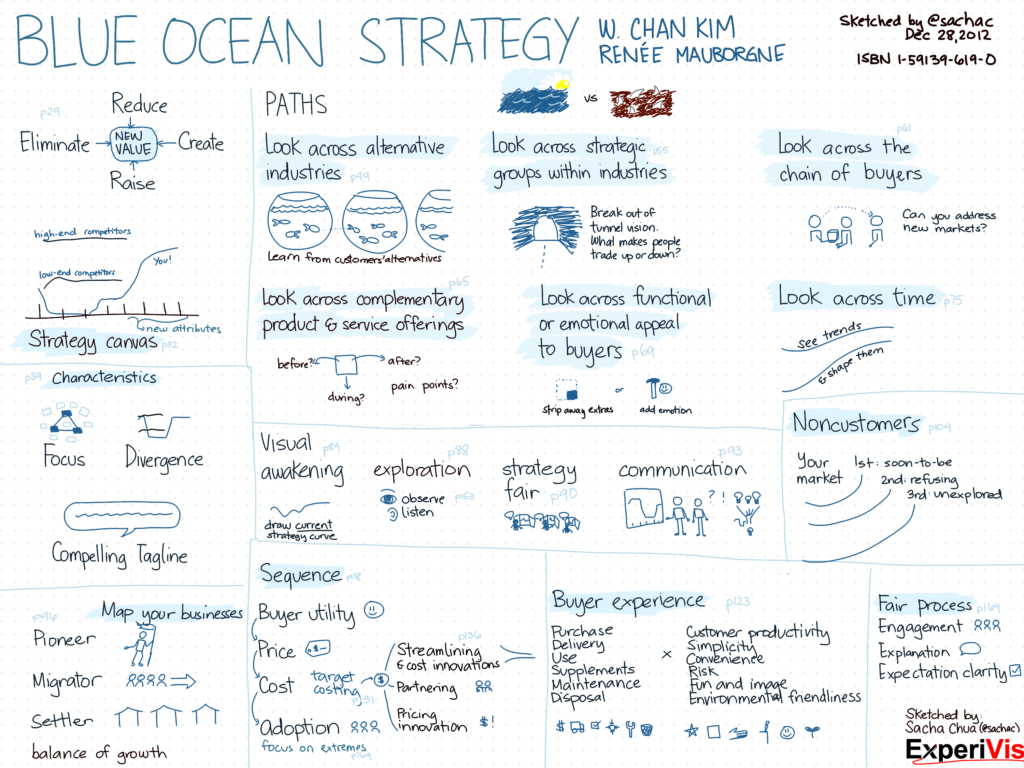 BLUE OCEAN STRATEGY
W. CHAN KIM
RENÉE MAUBORGNE
Sketched by @sachac
Dec 28, 2012
ISBN 1-59139-619-0
p29
Reduce
Eliminate
NEW
VALUE
Create
Raise
high-end competitors
low-end competitors
You!
new attributes
Strategy canvas p32
PATHS
vs
Look across alternative
industries p49
Learn from customers' alternatives
Look across strategic
groups within industries
p55
Break out of
tunnel vision.
What makes people
trade up or down?
p61
Look across the
chain of buyers
Can you address
new markets?
p65
Look across complementary
product & service offerings
before?
after?
during?
pain points?
Look across functional
or emotional appeal
to buyers p69
strip away extras
or
add emotion
Look across time p75
see trends
& shape them
p39 Characteristics
Focus
Divergence
Compelling Tagline
Visual
awakening
p84
draw current
strategy curve
p88
exploration
observe
listen
strategy
fair p90
p93
communication
? !
Noncustomers p104
Your
market
1st: soon-to-be
2nd: refusing
3rd: unexplored
p96 Map your businesses
Pioneer
Migrator
Settler
balance of growth
Sequence p118
Buyer utility
Price
Cost
target
costing
p131
$
Adoption
focus on extremes
p136
Streamlining
& cost innovations
Partnering
Pricing
innovation
$!
Buyer experience p123
Purchase
Delivery
Use
Supplements
Maintenance
Disposal
x
Customer productivity
Simplicity
Convenience
Risk
Fun and image
Environmental friendliness
$
Fair process p164
Engagement
Explanation
Expectation clarity
Sketched by:
Sacha Chua (@sachac)
ExperiVis